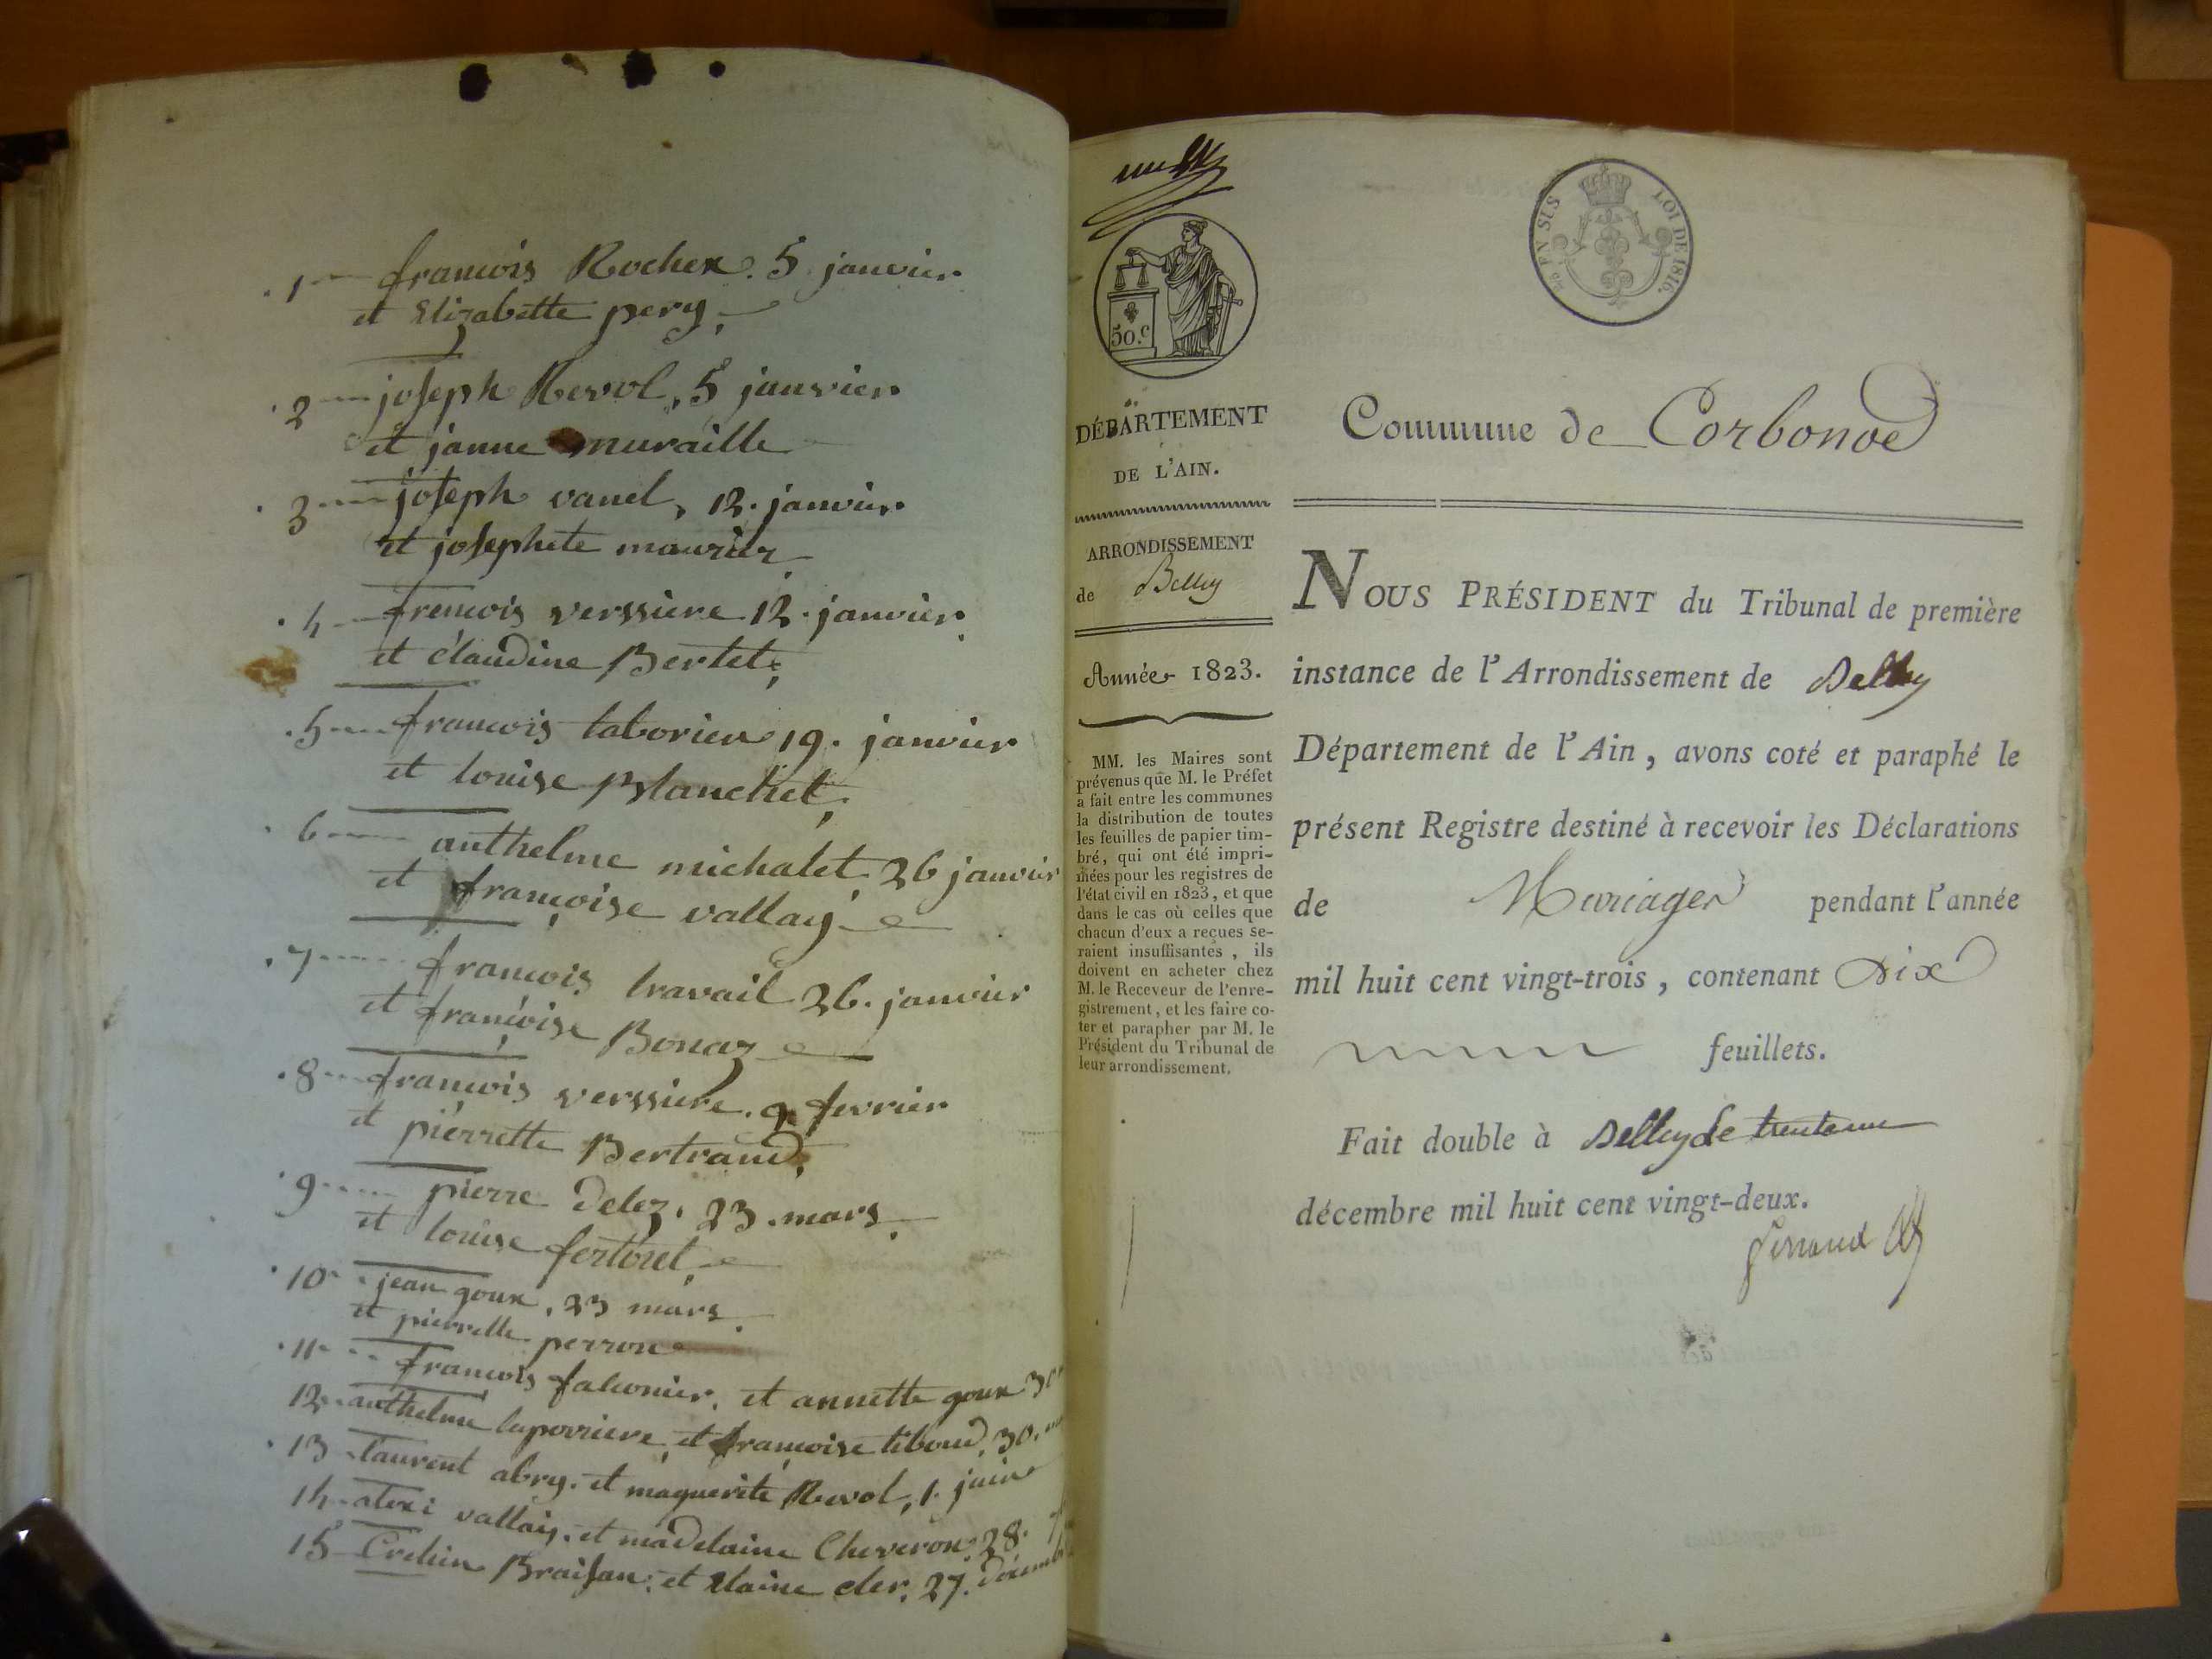 1 francois Rochex. 5 janvier
et Elizabette pery.
2 joseph Revol, 5 janvier
et janne muraille
3 joseph vanel, 12. janvier
et josephete maurier
4 francois verssiere 12. janvier
et claudine Bertet.
5 francois taborier 19. janvier
et louise Blanchet.
6 anthelme michalet 26 janvier
et françoise vallay
7 francois travail 26. janvier
et françoise Bonaz
8 francois verssiere. 9 fevrier
et pierrette Bertrand,
9 pierre delez. 23. mars
et louise fertoret
10 jean goux, 23 mars
et pierrette perron
11 francois falconier. et annette goux 30
12 anthelme laperriere et françoise tiboud, 30.
13 laurent abry. et maguerite Revol, 1. juin
14 alexi vallay. et madelaine Cheveron 28.
15 Braisan. et cler. 27. décembre
50.c
DÉPARTEMENT
DE L'AIN.
ARRONDISSEMENT
de Belley
Année 1823.
MM. les Maires sont
prévenus que M. le Préfet
a fait entre les communes
la distribution de toutes
les feuilles de papier tim-
bré, qui ont été impri-
mées pour les registres de
l'état civil en 1823, et que
dans le cas où celles que
chacun d'eux a reçues se-
raient insuffisantes, ils
doivent en acheter chez
M. le Receveur de l'enre-
gistrement, et les faire co-
ter et parapher par M. le
Président du Tribunal de
leur arrondissement.
LOI DE 1816.
Commune de Corbonod
NOUS PRÉSIDENT du Tribunal de première
instance de l'Arrondissement de Belley
Département de l'Ain, avons coté et paraphé le
présent Registre destiné à recevoir les Déclarations
de Mariages pendant l'année
mil huit cent vingt-trois, contenant dix
feuillets.
Fait double à Belley le trente un
décembre mil huit cent vingt-deux.